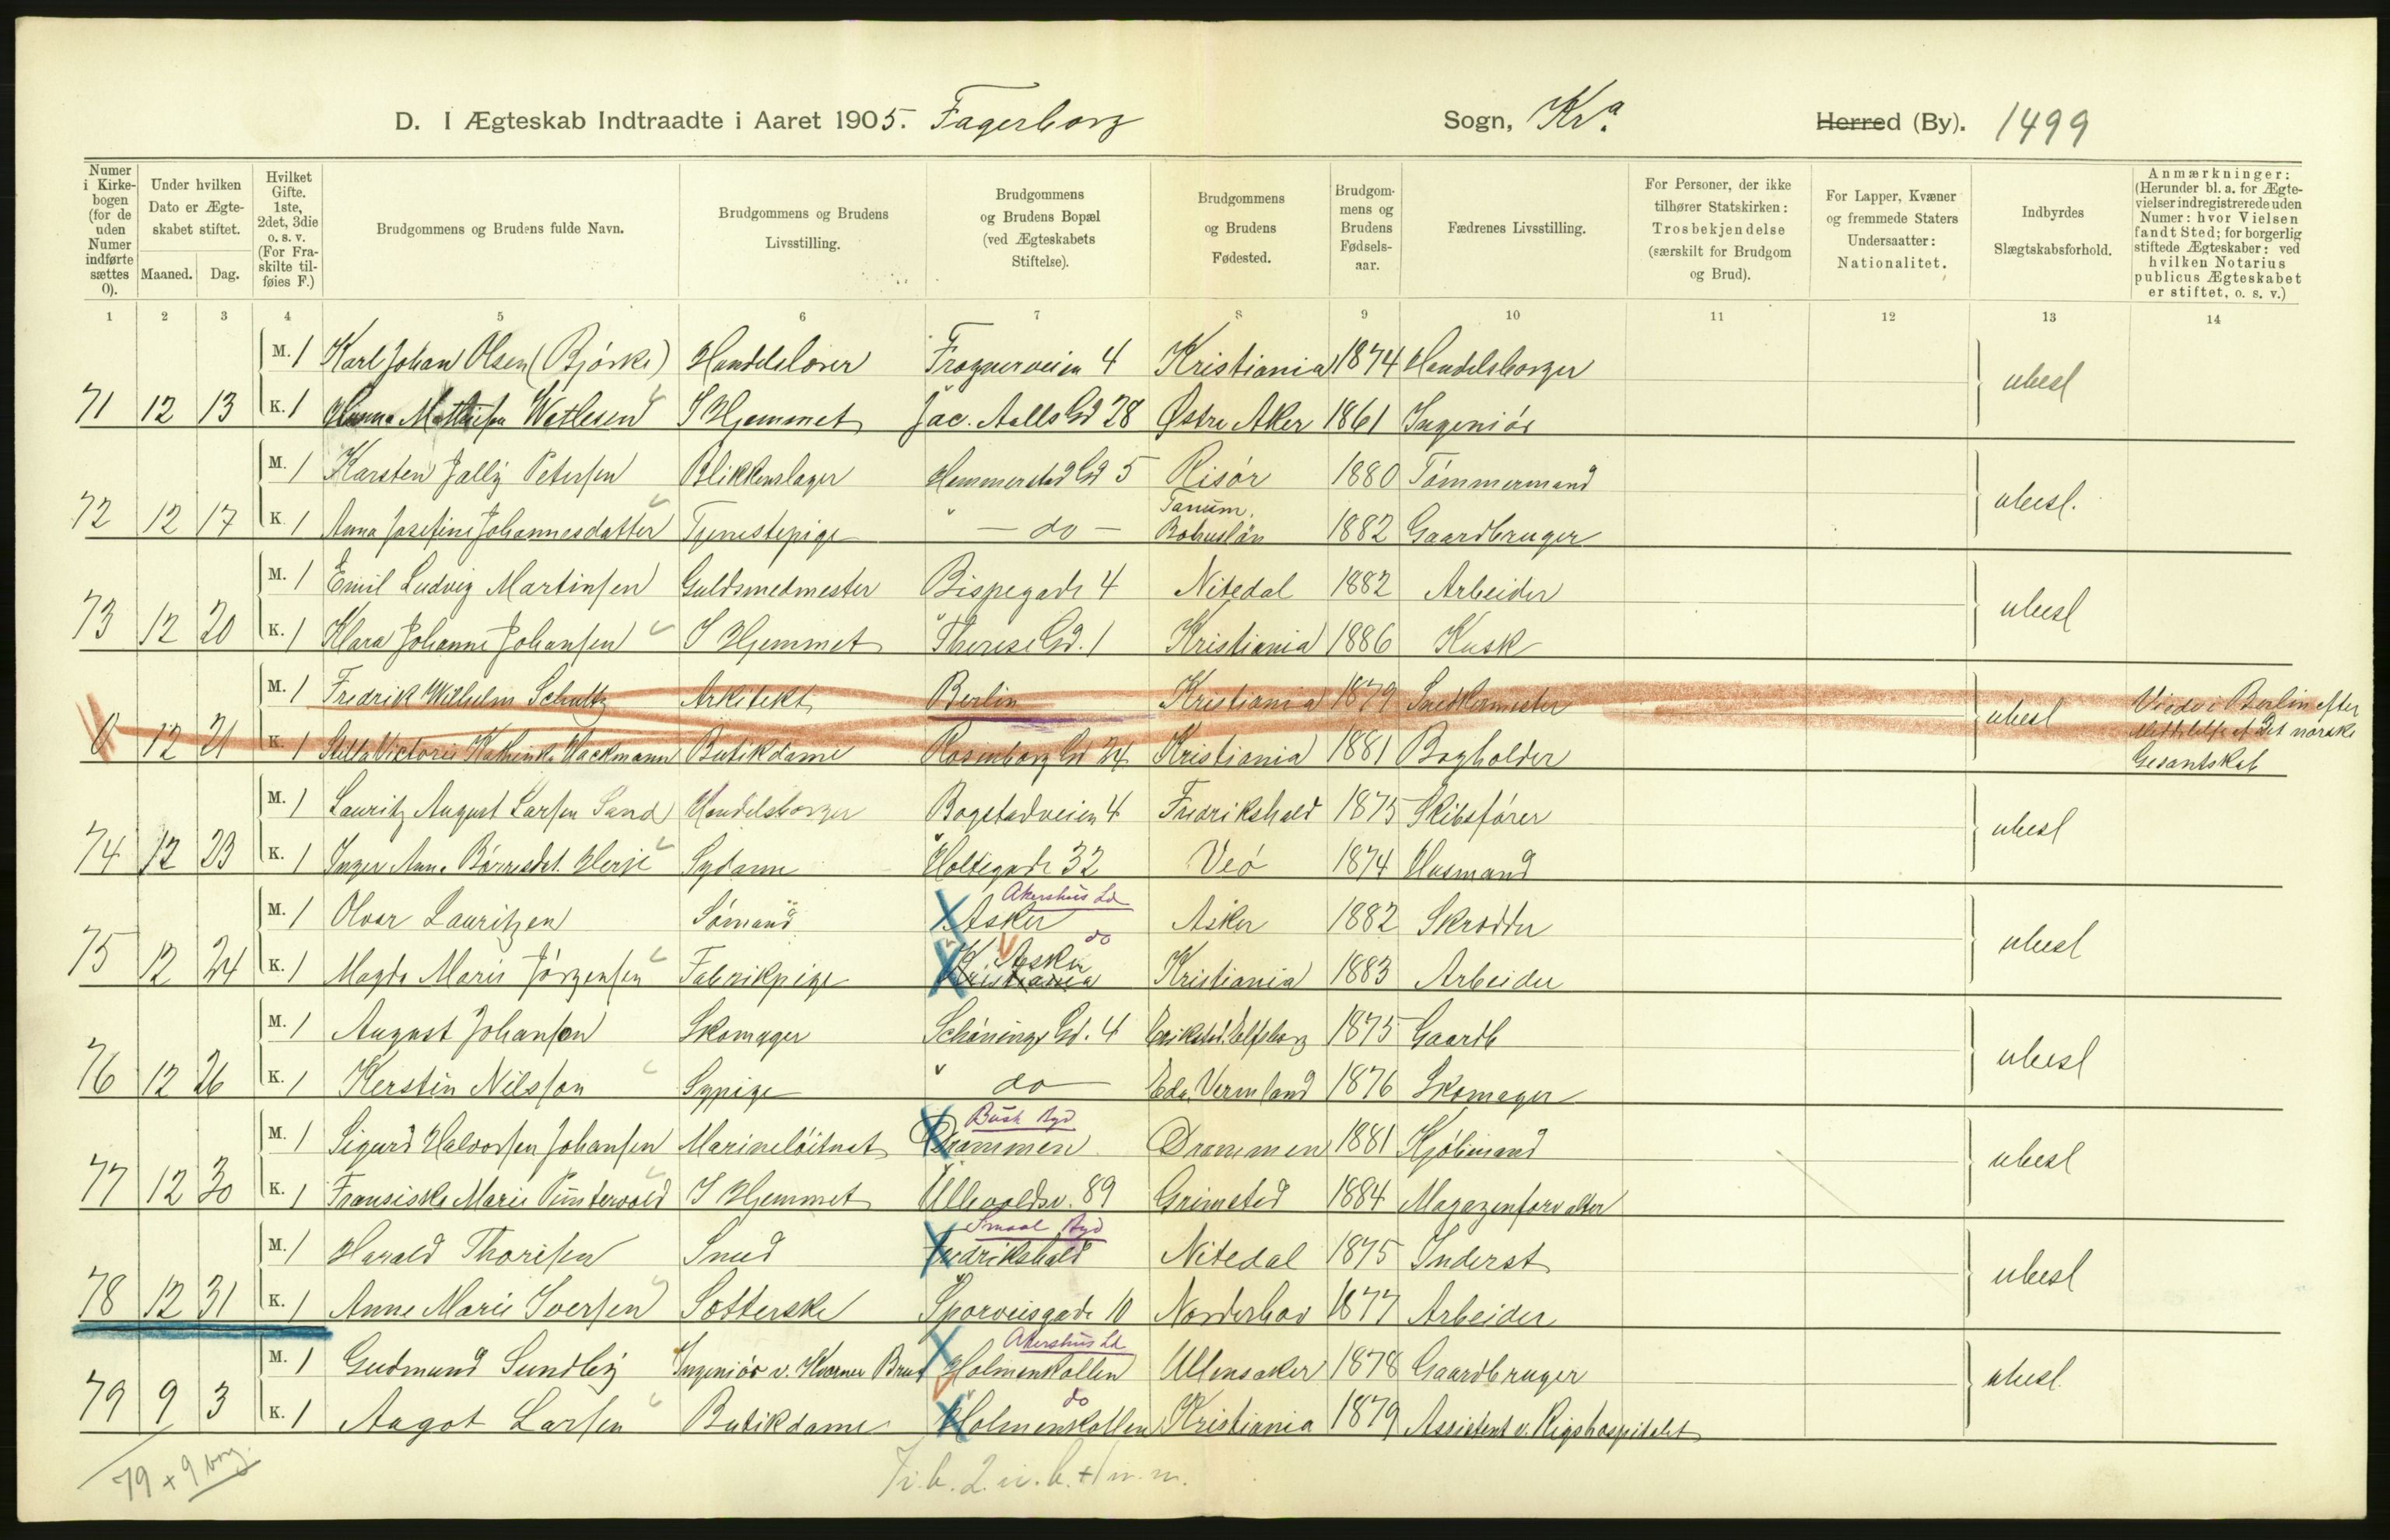 D. I Ægteskab Indtraadte i Aaret 1905. Fagerborg Sogn, Kr.a Herred (By). 1499
Numer i Kirkebogen (for de uden Numer indførte sættes 0).
Under hvilken Dato er Ægteskabet stiftet.
Maaned. Dag.
Hvilket Gifte. 1ste, 2det, 3die o. s. v. (For Fraskilte tilføies F.)
Brudgommens og Brudens fulde Navn.
Brudgommens og Brudens Livsstilling.
Brudgommens og Brudens Bopæl (ved Ægteskabets Stiftelse).
Brudgommens og Brudens Fødested.
Brudgommens og Brudens Fødselsaar.
Fædrenes Livsstilling.
For Personer, der ikke tilhører Statskirken: Trosbekjendelse (særskilt for Brudgom og Brud).
For Lapper, Kvæner og fremmede Staters Undersaatter: Nationalitet.
Indbyrdes Slægtskabsforhold.
Anmærkninger: (Herunder bl. a. for Ægtevielser indregistrerede uden Numer: hvor Vielsen fandt Sted; for borgerlig stiftede Ægteskaber: ved hvilken Notarius publicus Ægteskabet er stiftet, o. s. v.)
1 2 3 4 5 6 7 8 9 10 11 12 13 14
M. 1 Karl Johan Olsen (Bjørke) Handelslærer Frognerveien 4 Kristiania 1874 Handelsborger
71 12 13 K. 1 Watlesend I Hjemmet Jac. Aalls Gd 28 Østre Aker 1861 Ingeniør ubesl
M. 1 Karsten Jally Petersen Blikkenslager Hammerstad Gd 5 Risør 1880 Tømmermand
72 12 17 K. 1 Anna Josefine Johannesdatter Tjenestepige " — do — Tanum, Bohuslän 1882 Gaardbruger ubesl.
M. 1 Emil Ludvig Martinsen Guldsmedmester Bispegade 4 Nitedal 1882 Arbeider
73 12 20 K. 1 Klara Johanne Johansen I Hjemmet Therese Gd. 1 Kristiania 1886 Kusk ubesl
M. 1 Fredrik Wilhelm Schultz Arkitekt Berlin Kristiania 1879 Snedkermester
0 12 21 K. 1 Stella Victoria Kathinka Wackmann Butikdame Rosenborg Gd 24 Kristiania 1881 Bogholder ubesl Viede i Berlin efter Meddelelse af Det norske Gesantskab
M. 1 Lauritz August Larsen Sand Handelsborger Bogstadveien 4 Fredrikshald 1875 Skibsfører
74 12 23 K. 1 Inger Anna Børresdat. Herje Sydame Holtegade 32 Veø 1874 Husmand ubesl
M. 1 Olvar Lauritzen Sømand Akershus Ld Asker Asker 1882 Skrædder
75 12 24 K. 1 Magda Marie Jørgensen Fabrikpige Kristiania Asker do Kristiania 1883 Arbeider ubesl
M. 1 August Johanson Skomager Schönings Gd. 4 Erikstad. Elfsborg 1875 Gaardb
76 12 26 K. 1 Kerstin Nilsson Sypige " do Eda, Vermland 1876 Skomager ubesl
M. 1 Sigurd Halvorsen Johansen Marineløitnat Busk Byd Drammen Drammen 1881 Kjøbmand
77 12 30 K. 1 Fransiska Marie Punterwold I Hjemmet Ullevoldsv. 89 Grimsted 1884 Magazenforvalter ubesl
M. 1 Harald Thorisen Smed Smaal Byd Fredrikshald Nitedal 1875 Inderst
78 12 31 K. 1 Anne Marie Iversen Sotterske Sporveisgade 10 Norderhov 1877 Arbeider ubesl
M. 1 Gudmund Sundby Ingeniør v. Kværner Brug Akershus Ld Holmenkollen Ullensaker 1878 Gaardbruger
79 9 3 K. 1 Aagot Larsen Butikdame do Holmenkollen Kristiania 1879 Assistent v. Rigshospitalet ubesl.
79 + 9 borg.